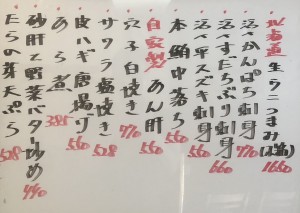 北海道 生うにつまみ(塩) 1660
活〆かんぱち刺身 770
活〆すだちぶり刺身 660
活〆平スズキ刺身 560
本鮪中落ち 560
自家製 あん肝 560
穴子白焼き 770
サワラ塩焼き 528
皮ハギ唐揚げ 560
あら煮 385
砂肝と野菜バター炒め 440
たらの芽天ぷら 528